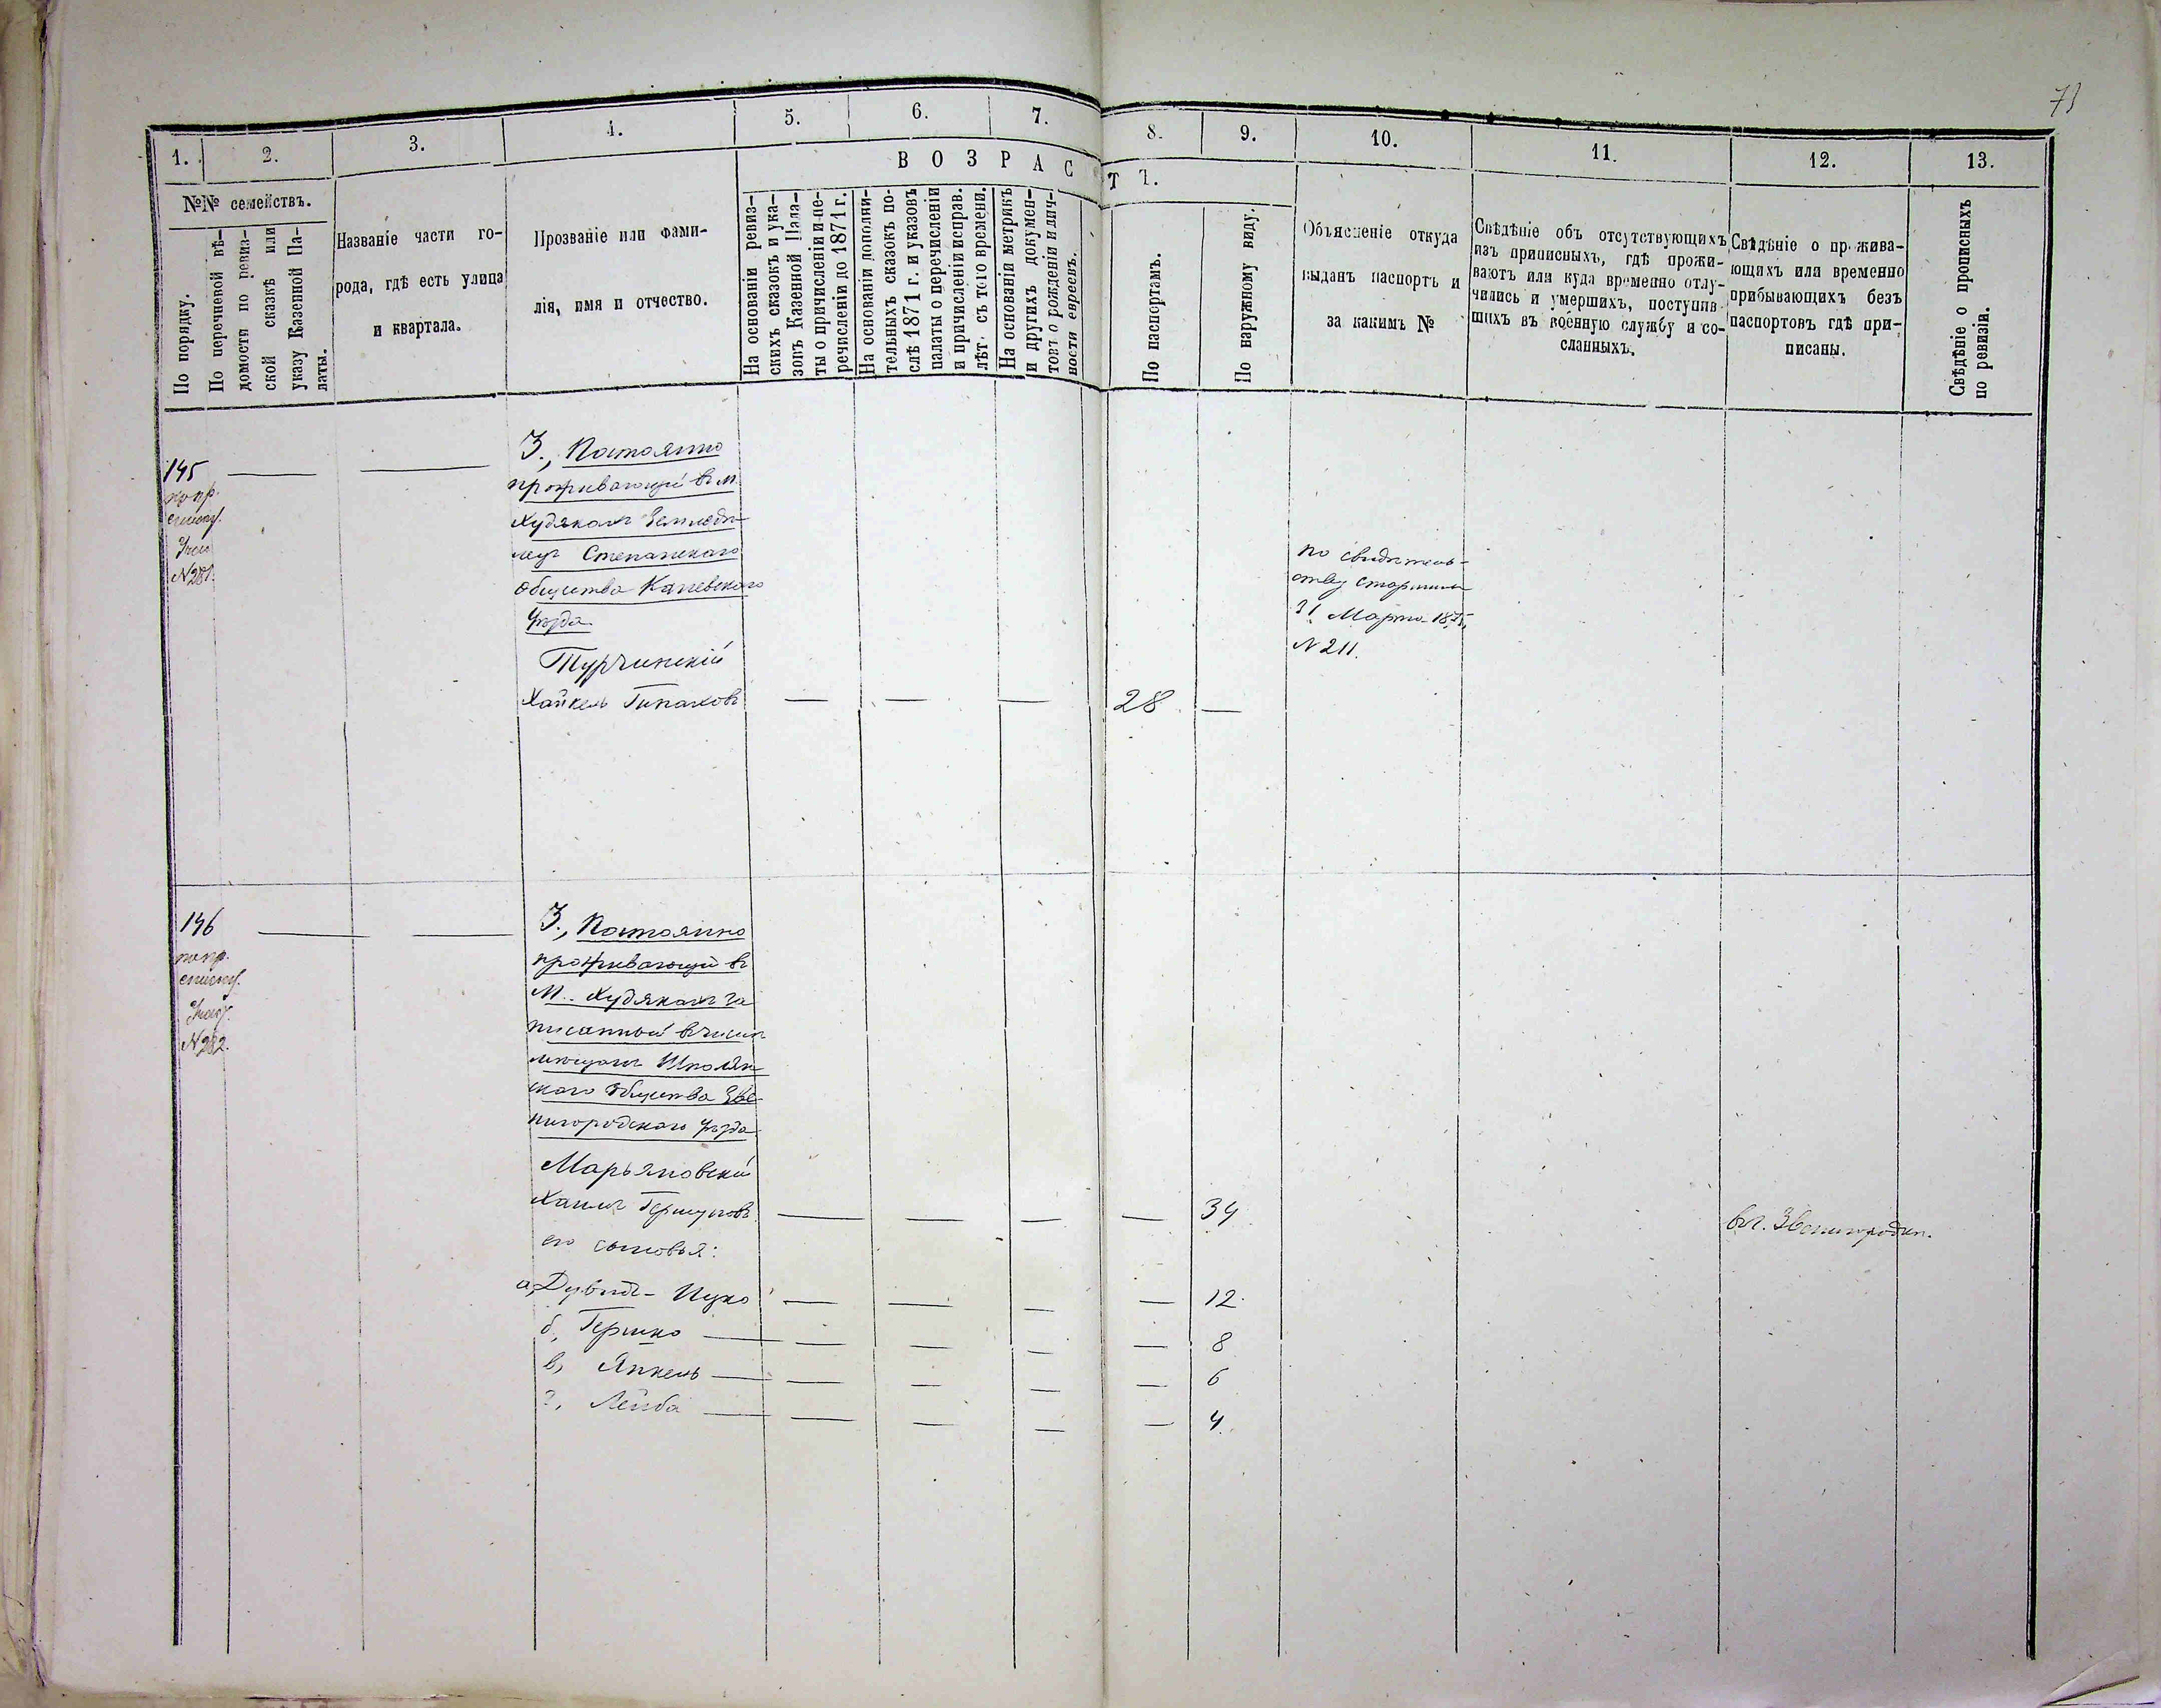 73
1.
2.
3.
4.
5.
6.
7.
8.
9.
10.
11.
12.
13.
№№ семействъ.
В О З Р А С Т Ъ.
По порядку.
По перечневой вѣ-
домости по ревиз-
ской сказкѣ или
указу Казенной Па-
латы.
Названіе части го-
рода, гдѣ есть улица
и квартала.
Прозваніе или фами-
лія, имя и отчество.
На основаніи ревиз-
скихъ сказокъ и ука-
зовъ Казенной Пала-
ты о причисленіи и пе-
речисленіи до 1871 г.
На основаніи дополни-
тельныхъ сказокъ по-
слѣ 1871 г. и указовъ
палаты о перечисленіи
и причисленіи исправ.
лѣт. съ того времени.
На основаніи метрикъ
и другихъ докумен-
товъ о рожденіи и лич-
ности евреевъ.
По паспортамъ.
По наружному виду.
Объясненіе откуда
выданъ паспортъ и
за какимъ №
Свѣдѣніе объ отсутствующихъ
изъ приписныхъ, гдѣ прожи-
ваютъ или куда временно отлу-
чились и умершихъ, поступив-
шихъ въ военную службу и со-
сланныхъ.
Свѣдѣніе о прожива-
ющихъ или временно
прибывающихъ безъ
паспортовъ гдѣ при-
писаны.
Свѣдѣніе о прописныхъ
по ревизіи.
145
по пр.
списку.
№281.
3., Постоянно
проживающій въ м.
Худякахъ Земледѣ-
лецъ Степанскаго
Общества Каневскаго
Уѣзда
Турчинскій
Хайкель Пинаховъ — — — 28 —
по свидѣтель-
ству старшины
31 Марта 1875
№ 211.
146
по пр.
списку.
№282.
3., Постоянно
проживающій въ
М. Худякахъ за
писанный в числи
мещанъ Шполян
скаго Общества Зве-
нигородскаго Уѣзда
Марьяновскій
Хаимъ Гершуновъ — — — — 34
в г. Звенигородки.
его сыновья:
а, Дувидъ-Ицко — — — — 12.
б, Гершко — — — — 8
в, Янкель — — — — 6
г, Лейба — — — — 4.